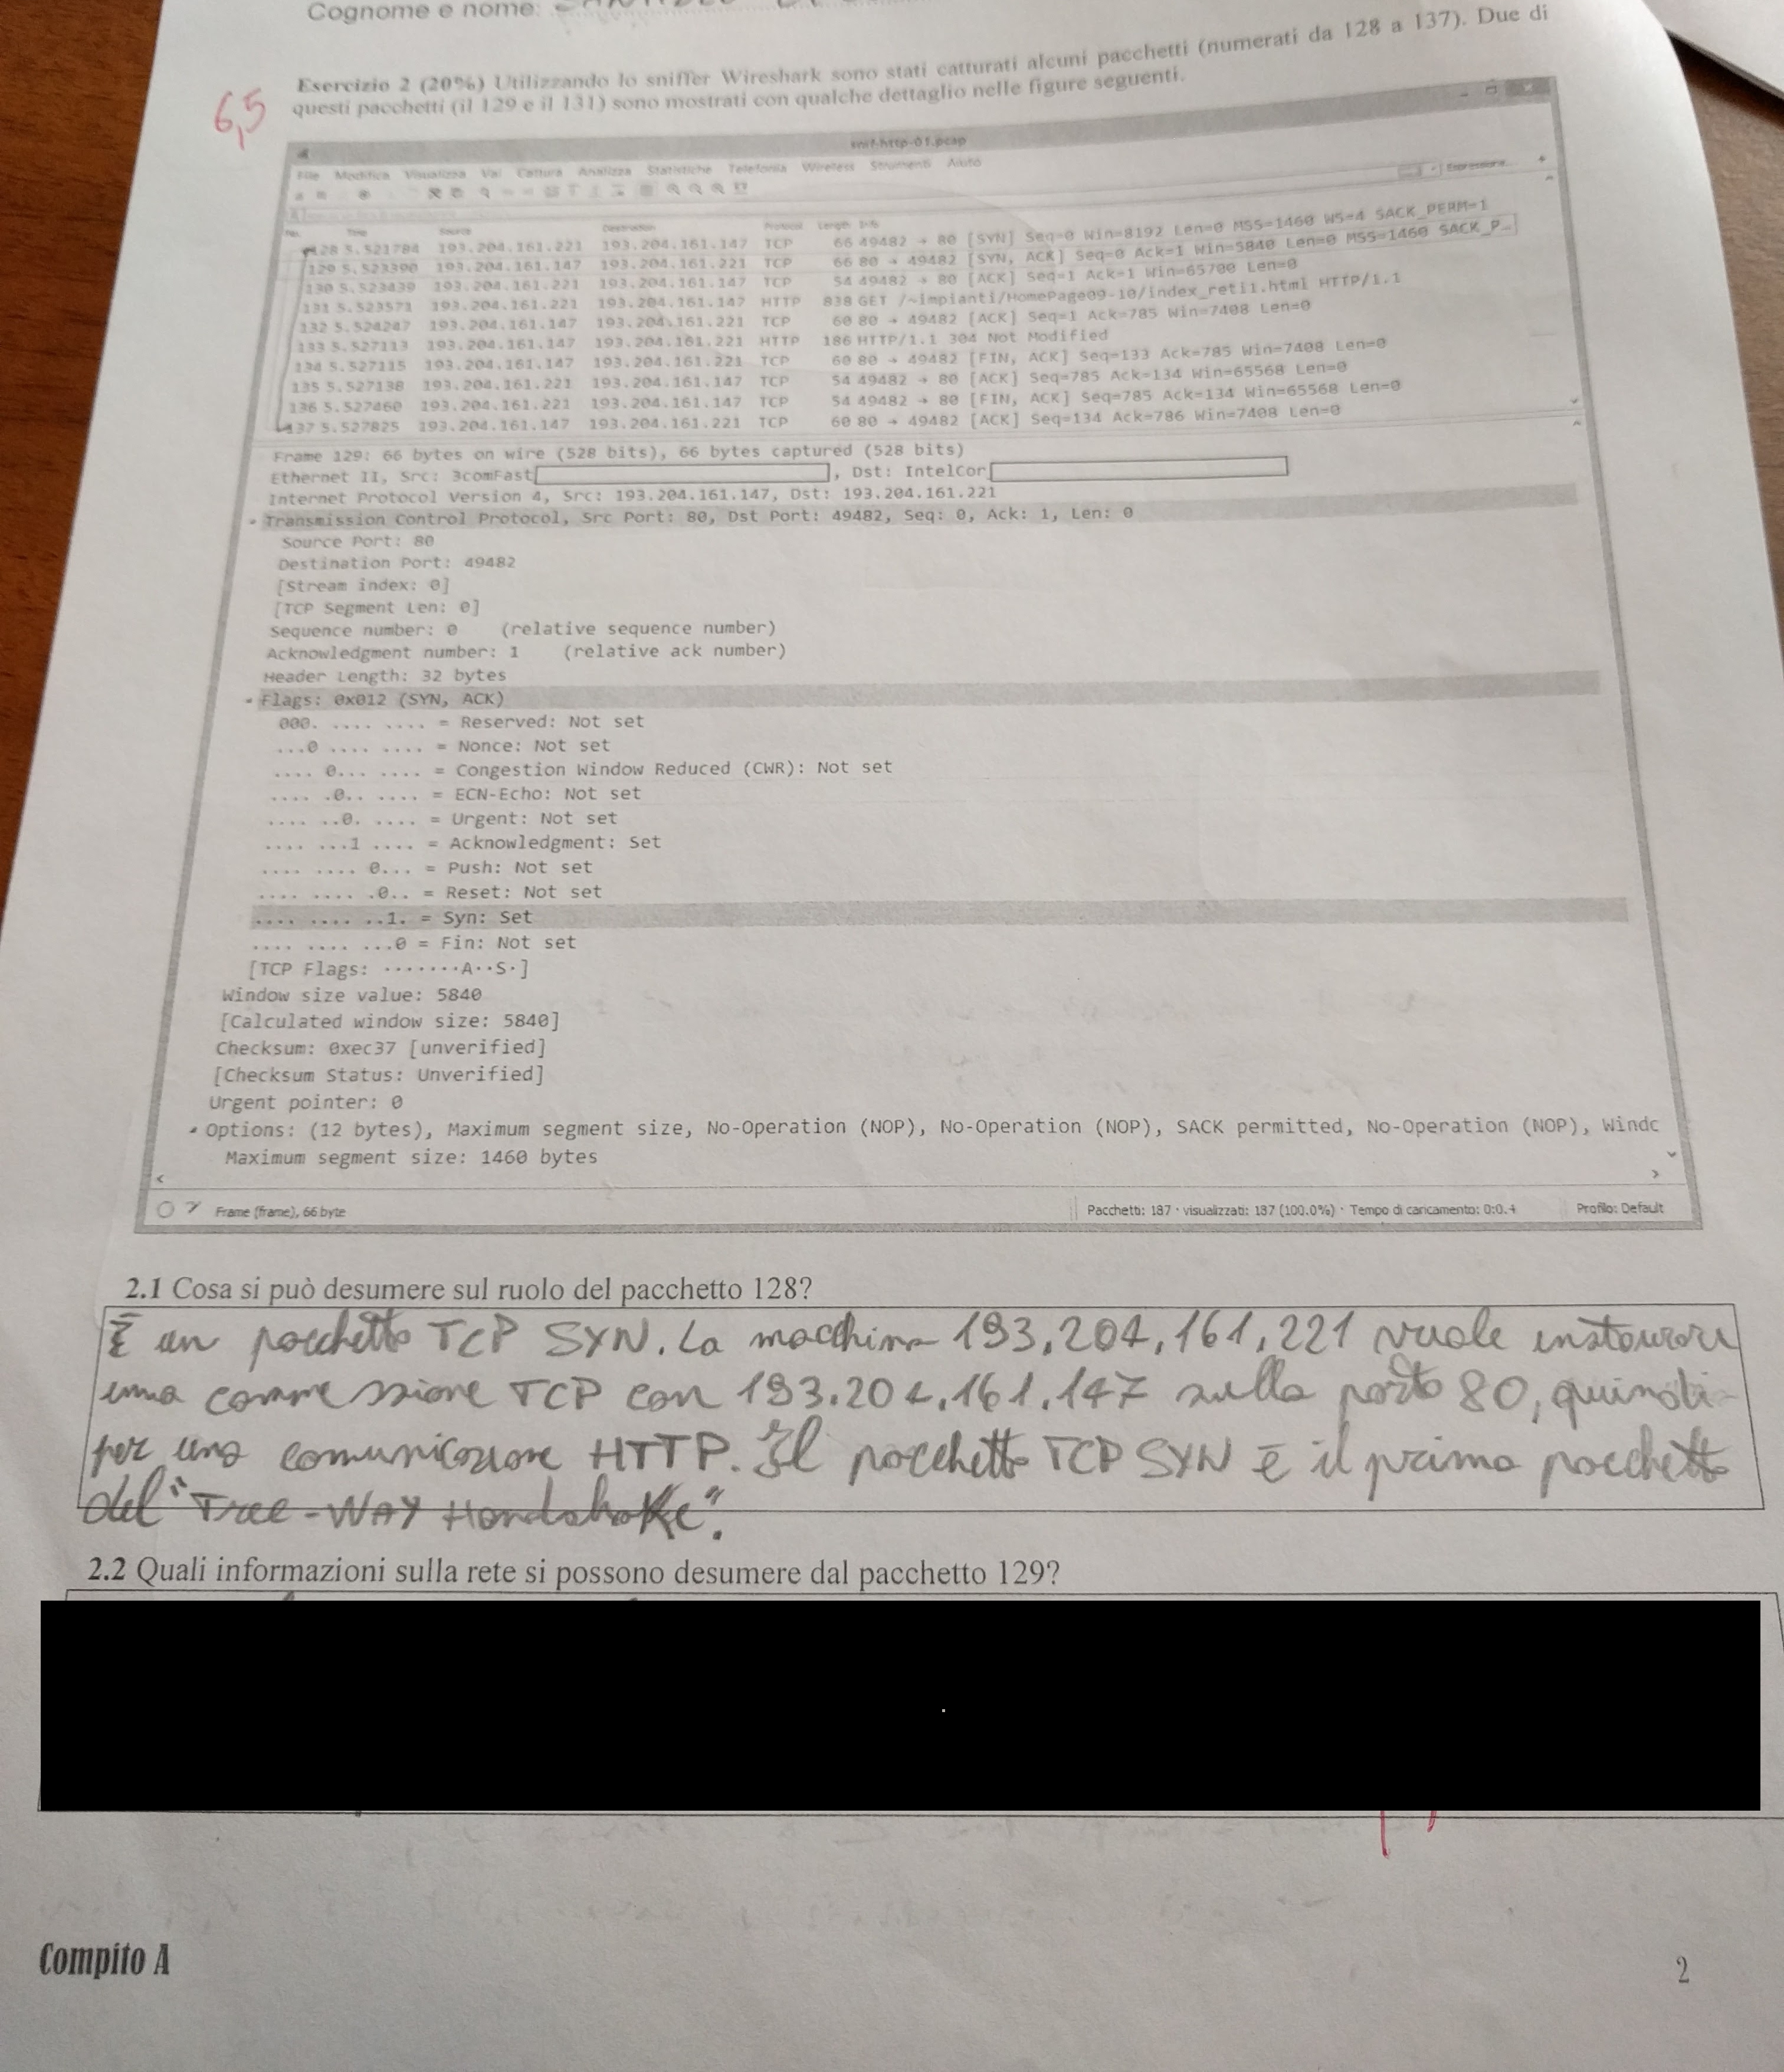 Cognome e nome:
Esercizio 2 (20%) Utilizzando lo sniffer Wireshark sono stati catturati alcuni pacchetti (numerati da 128 a 137). Due di
questi pacchetti (il 129 e il 131) sono mostrati con qualche dettaglio nelle figure seguenti.
6,5
snif-http-01.pcap
File Modifica Visualizza Vai Cattura Analizza Statistiche Telefonia Wireless Strumenti Aiuto
Expression...
No. Time Source Destination Protocol Length Info
128 5.521784 193.204.161.221 193.204.161.147 TCP 66 49482 → 80 [SYN] Seq=0 Win=8192 Len=0 MSS=1460 WS=4 SACK_PERM=1
129 5.523390 193.204.161.147 193.204.161.221 TCP 66 80 → 49482 [SYN, ACK] Seq=0 Ack=1 Win=5840 Len=0 MSS=1460 SACK_P…
130 5.523439 193.204.161.221 193.204.161.147 TCP 54 49482 → 80 [ACK] Seq=1 Ack=1 Win=65700 Len=0
131 5.523571 193.204.161.221 193.204.161.147 HTTP 838 GET /~impianti/HomePage09-10/index_reti1.html HTTP/1.1
132 5.524247 193.204.161.147 193.204.161.221 TCP 60 80 → 49482 [ACK] Seq=1 Ack=785 Win=7408 Len=0
133 5.527113 193.204.161.147 193.204.161.221 HTTP 186 HTTP/1.1 304 Not Modified
134 5.527115 193.204.161.147 193.204.161.221 TCP 60 80 → 49482 [FIN, ACK] Seq=133 Ack=785 Win=7408 Len=0
135 5.527138 193.204.161.221 193.204.161.147 TCP 54 49482 → 80 [ACK] Seq=785 Ack=134 Win=65568 Len=0
136 5.527460 193.204.161.221 193.204.161.147 TCP 54 49482 → 80 [FIN, ACK] Seq=785 Ack=134 Win=65568 Len=0
137 5.527825 193.204.161.147 193.204.161.221 TCP 60 80 → 49482 [ACK] Seq=134 Ack=786 Win=7408 Len=0
Frame 129: 66 bytes on wire (528 bits), 66 bytes captured (528 bits)
Ethernet II, Src: 3comFast , Dst: IntelCor
Internet Protocol Version 4, Src: 193.204.161.147, Dst: 193.204.161.221
Transmission Control Protocol, Src Port: 80, Dst Port: 49482, Seq: 0, Ack: 1, Len: 0
Source Port: 80
Destination Port: 49482
[Stream index: 0]
[TCP Segment Len: 0]
Sequence number: 0 (relative sequence number)
Acknowledgment number: 1 (relative ack number)
Header Length: 32 bytes
Flags: 0x012 (SYN, ACK)
000. .... .... = Reserved: Not set
...0 .... .... = Nonce: Not set
.... 0... .... = Congestion Window Reduced (CWR): Not set
.... .0.. .... = ECN-Echo: Not set
.... ..0. .... = Urgent: Not set
.... ...1 .... = Acknowledgment: Set
.... .... 0... = Push: Not set
.... .... .0.. = Reset: Not set
.... .... ..1. = Syn: Set
.... .... ...0 = Fin: Not set
[TCP Flags: ·······A··S·]
Window size value: 5840
[Calculated window size: 5840]
Checksum: 0xec37 [unverified]
[Checksum Status: Unverified]
Urgent pointer: 0
Options: (12 bytes), Maximum segment size, No-Operation (NOP), No-Operation (NOP), SACK permitted, No-Operation (NOP), Windc
Maximum segment size: 1460 bytes
Frame (frame), 66 byte Pacchetti: 187 · visualizzati: 187 (100.0%) · Tempo di caricamento: 0:0.4 Profilo: Default
2.1 Cosa si può desumere sul ruolo del pacchetto 128?
È un pacchetto TCP SYN. La macchina 193,204,161,221 vuole instaurare
una connessione TCP con 193.204.161.147 sulla porta 80, quindi
per una comunicazione HTTP. Il pacchetto TCP SYN è il primo pacchetto
del "Tree-WAY Handshake".
2.2 Quali informazioni sulla rete si possono desumere dal pacchetto 129?
Compito A
2